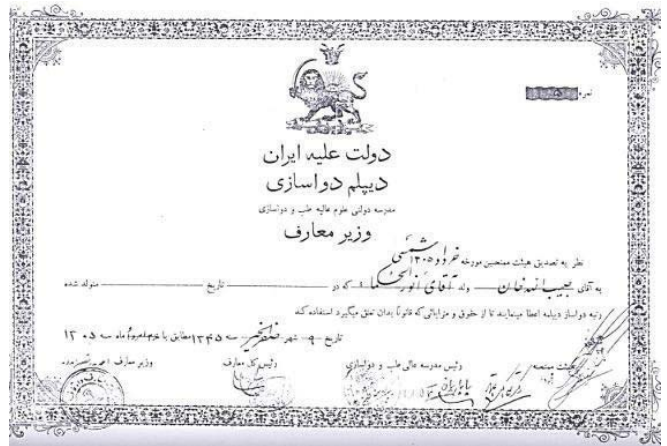 نمره
دولت علیه ایران
دیپلم دواسازی
مدرسه دولتی علوم عالیه طب و دواسازی
وزیر معارف
نظر به تصدیق هیئت ممتحنین مورخه خرداد ۱۳۰۵ شمسی
به آقای حبیب الله خان ولد آقای که در تاریخ متولد شده
رتبه دواساز دیپلمه اعطا مینمایند تا از حقوق و مزایائی که قانوناً بدان تعلق میگیرد استفاده کند
تاریخ ۹ شهر صفرالخیر سنه ۱۳۴۵ مطابق با ماه سنه ۱۳۰۵
هیئت ممتحنه رئیس مدرسه عالی طب و دواسازی رئیس کل معارف وزیر معارف